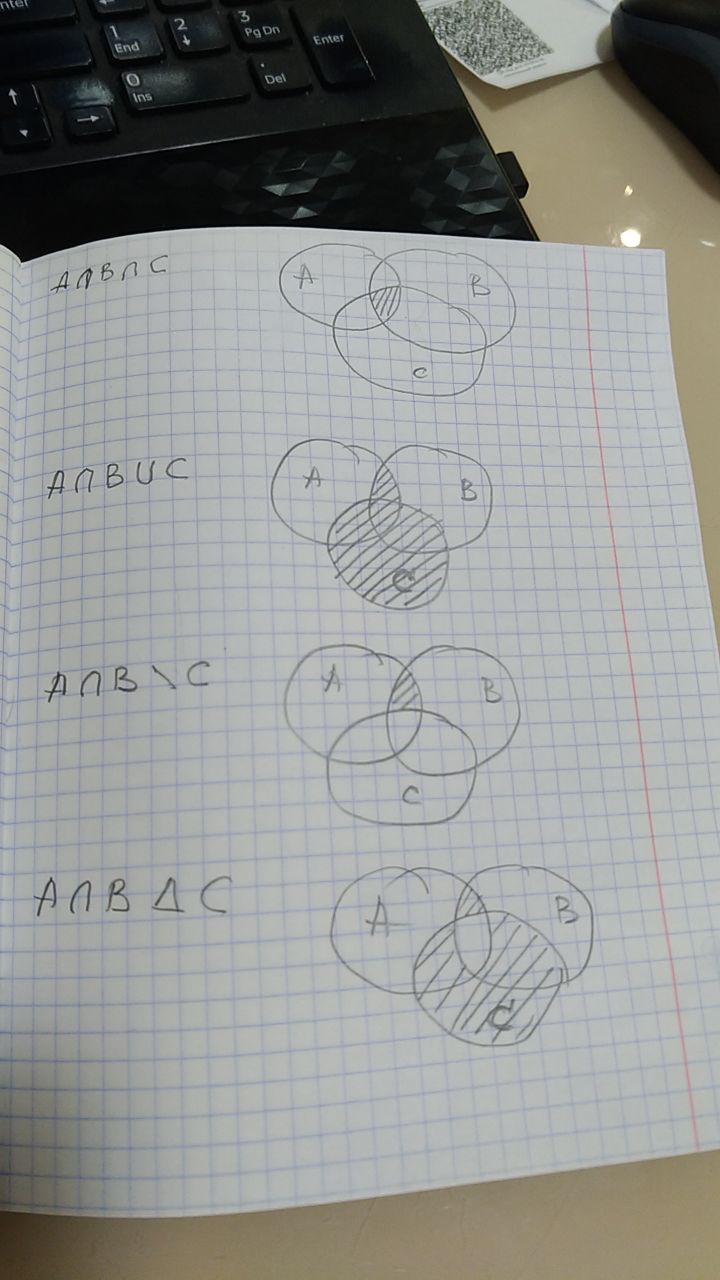 Enter
1 End
2
3 Pg Dn
Enter
0 Ins
. Del
A∩B∩C
A
B
C
A∩B∪C
A
B
C
A∩B∖C
A
B
C
A∩BΔC
A
B
C